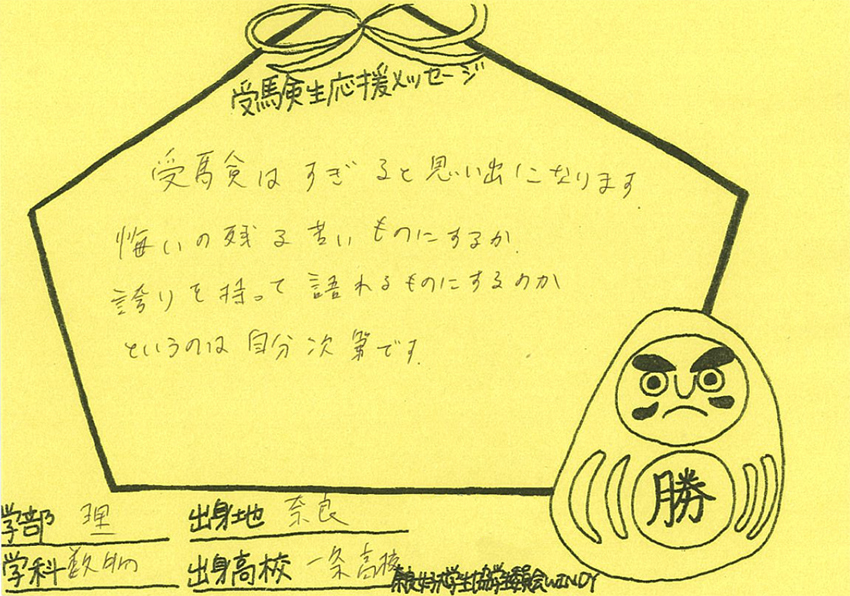 受験生応援メッセージ
受験はすぎると思い出になります
悔いの残る苦いものにするか
誇りを持って語れるものにするのか
というのは自分次第です
勝
学部 理
出身地 奈良
学科 数物
出身高校 一条高校
奈良女子大学生協学生委員会WINDY